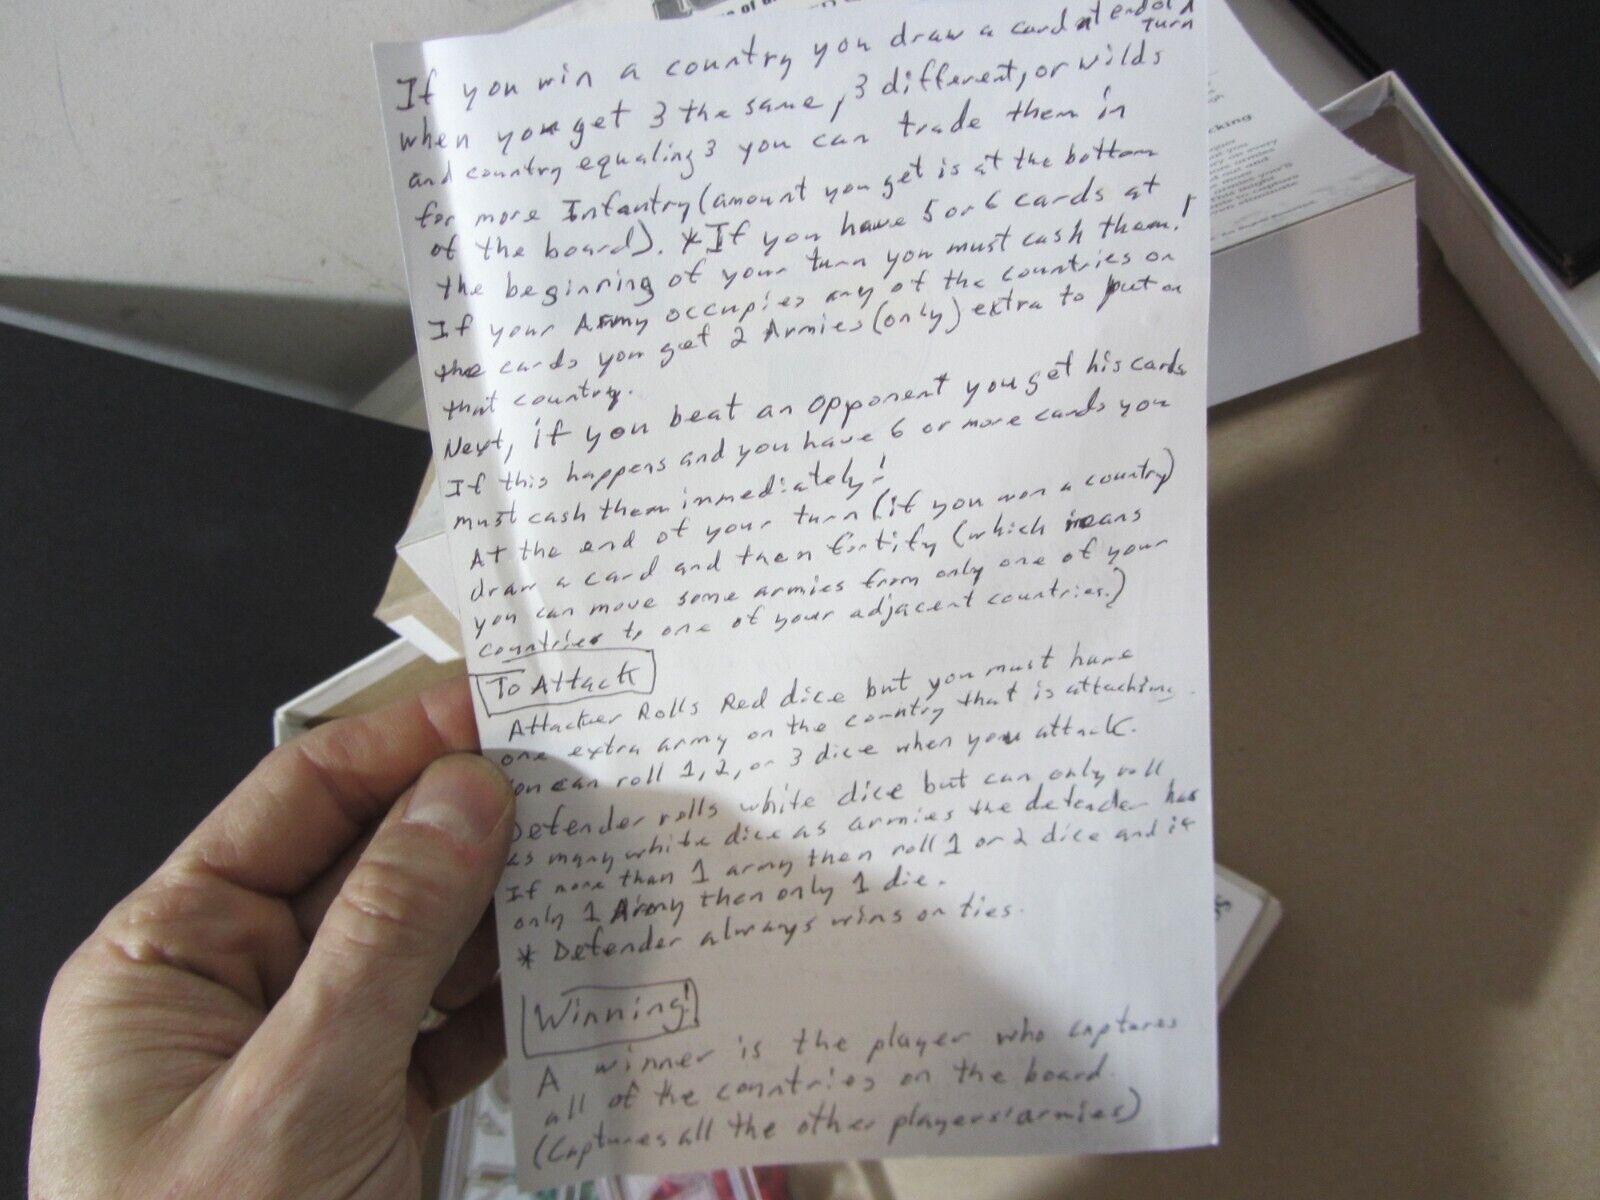 If you win a country you draw a card at end of a turn
when you get 3 the same, 3 different, or wilds
and country equaling 3 you can trade them in
for more Infantry (amount you get is at the bottom
of the board). *If you have 5 or 6 cards at
the beginning of your turn you must cash them!
If your Army occupies any of the countries on
the cards you get 2 Armies (only) extra to put on
that country.
Next, if you beat an opponent you get his cards
If this happens and you have 6 or more cards you
must cash them immediately!
At the end of your turn (if you won a country)
draw a card and then fortify (which means
you can move some armies from only one of your
countries to one of your adjacent countries.)
To Attack
Attacker Rolls Red dice but you must have
one extra army on the country that is attacking.
You can roll 1, 2, or 3 dice when you attack.
Defender rolls white dice but can only roll
as many white dice as armies the defender has
If more than 1 army then roll 1 or 2 dice and if
only 1 Army then only 1 die.
* Defender always wins on ties.
Winning!
A winner is the player who captures
all of the countries on the board.
(Captures all the other players' armies)
cking